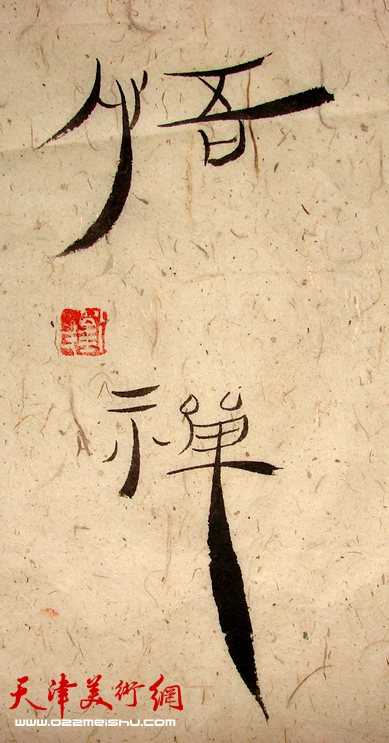 悟
禅
天津美術網
www.022meishu.com